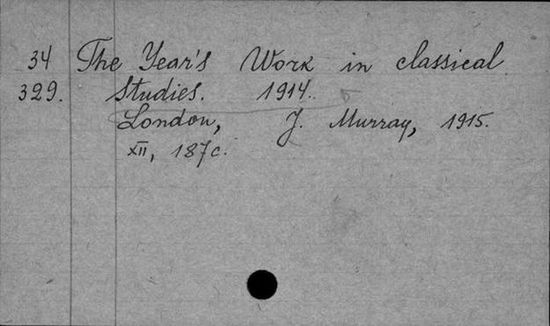 34 The Year's Work in classical
329. studies. 1914.
London, J. Murray, 1915.
XII, 187 c.